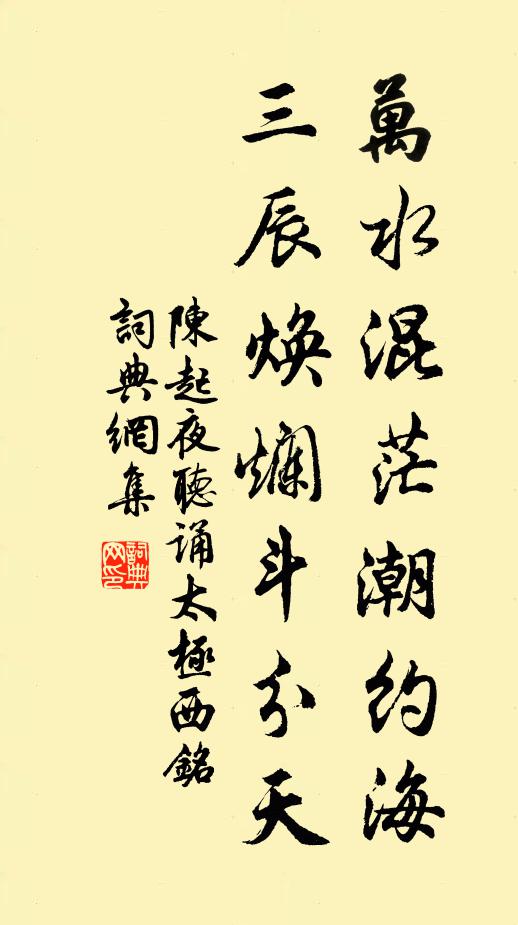 萬水混茫潮約海
三辰煥爛斗分天
陳起夜聽誦太極西銘
詞典網集
詞典网印